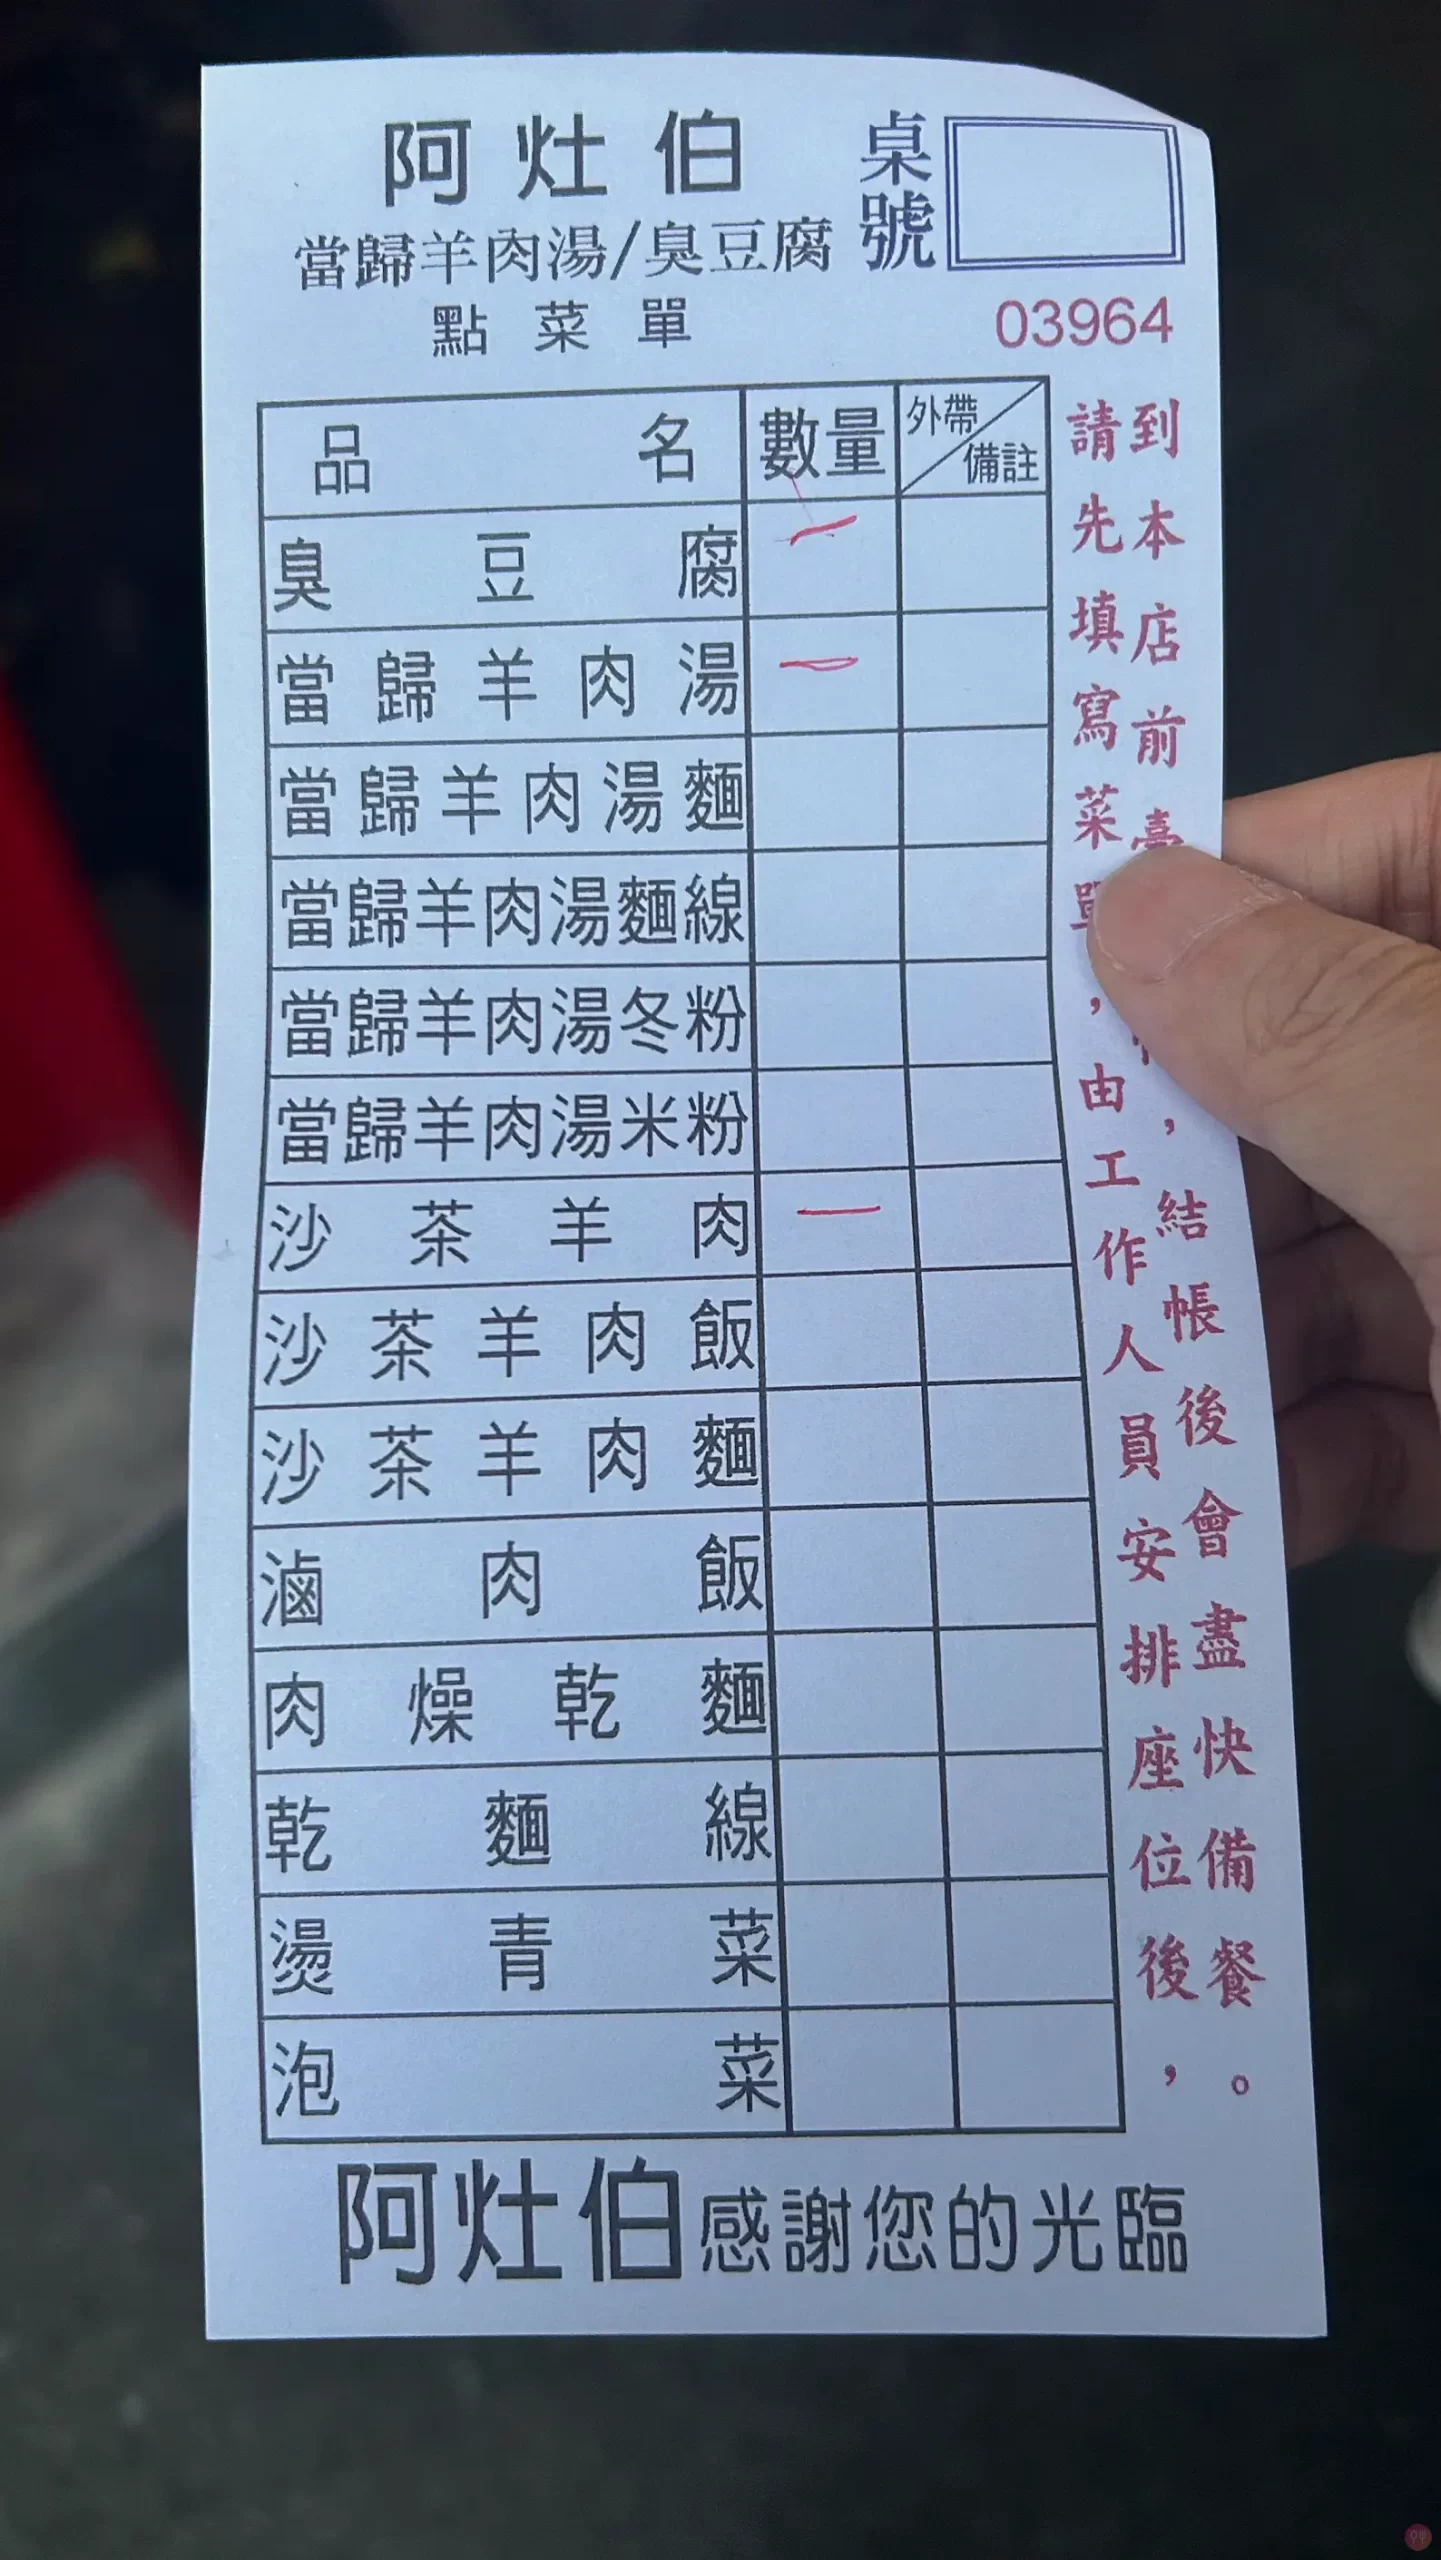 阿灶伯
當歸羊肉湯/臭豆腐
點菜單
桌號
03964
品名 數量 外帶/備註
臭豆腐 一
當歸羊肉湯 一
當歸羊肉湯麵
當歸羊肉湯麵線
當歸羊肉湯冬粉
當歸羊肉湯米粉
沙茶羊肉 一
沙茶羊肉飯
沙茶羊肉麵
滷肉飯
肉燥乾麵
乾麵線
燙青菜
泡菜
請先填寫菜單,由工作人員安排座位後,
到本店前臺,結帳後會盡快備餐。
阿灶伯感謝您的光臨